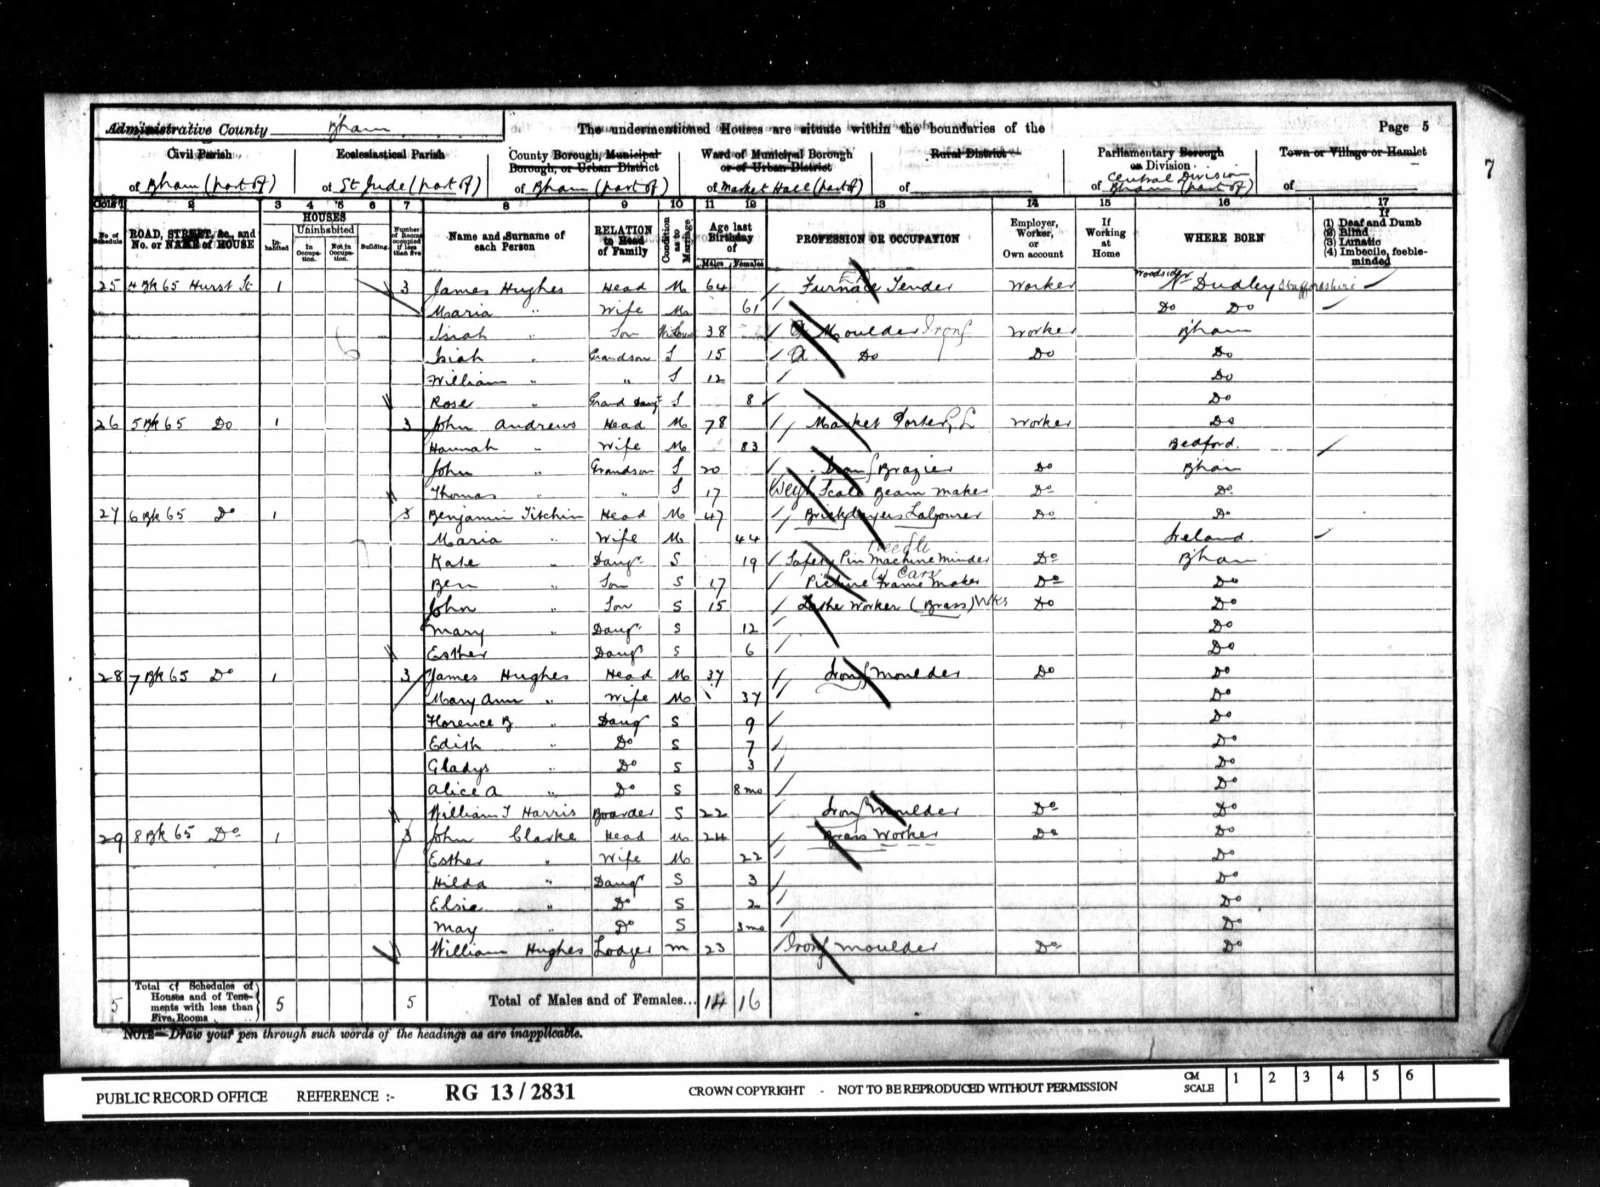 Administrative County Bham The undermentioned Houses are situate within the boundaries of the Page 5
7
Civil Parish of Bham (part of) Ecclesiastical Parish of St Jude (part of) County Borough, Municipal Borough, or Urban District of Bham (part of) Ward of Municipal Borough or of Urban District of Market Hall (part of) Rural District of Parliamentary Borough or Division of Central Division Bham (part of) Town or Village or Hamlet of
Cols 1 2 3 4 5 6 7 8 9 10 11 12 13 14 15 16 17
No. of Schedule ROAD, STREET, &c., and No. or NAME of HOUSE HOUSES Inhabited Uninhabited In Occupation. Not in Occupation. Building. Number of Rooms occupied if less than five Name and Surname of each Person RELATION to Head of Family Condition as to Marriage Age last Birthday of Males Females PROFESSION OR OCCUPATION Employer, Worker, or Own account If Working at Home WHERE BORN If (1) Deaf and Dumb (2) Blind (3) Lunatic (4) Imbecile, feeble-minded
25 4 Bk 65 Hurst St 1 3 James Hughes Head M 64 Furnace Tender Worker Woodside Nr Dudley Staffordshire
Maria " Wife M 61 Do Do
Isiah " Son 38 Moulder Iron Worker Bham
Isiah " Grandson S 15 Do Do Do
William " " S 12 Do
Rose " Grand Daugr S 8 Do
26 5 Bk 65 Do 1 3 John Andrews Head M 78 Market Porter Worker Do
Hannah " Wife M 83 Bedford
John " Grandson S 20 Iron Brazier Do Bham
Thomas " " S 17 Weigh Scale Beam Maker Do Do
27 6 Bk 65 Do 1 3 Benjamin Titchin Head M 47 Bricklayers Labourer Do Do
Maria " Wife M 44 Ireland
Kate " Daugr S 19 Safety Pin Machine Minder Needle Do Bham
Ben " Son S 17 Picture Frame Maker Do Do
John " Son S 15 Lathe Worker (Brass) Wks Do Do
Mary " Daugr S 12 Do
Esther " Daugr S 6 Do
28 7 Bk 65 Do 1 3 James Hughes Head M 37 Iron Moulder Do Do
Mary Ann " Wife M 37 Do
Florence B " Daugr S 9 Do
Edith " Do S 7 Do
Gladys " Do S 3 Do
Alice A " Do S 8 mo Do
William T Harris Boarder S 22 Iron Moulder Do Do
29 8 Bk 65 Do 1 3 John Clarke Head M 24 Brass Worker Do Do
Esther " Wife M 22 Do
Hilda " Daugr S 3 Do
Elsie " Do S 2 Do
May " Do S 3 mo Do
William Hughes Lodger M 23 Iron Moulder Do Do
5 Total of Schedules of Houses and of Tenements with less than Five Rooms 5 5 Total of Males and of Females... 14 16
NOTE—Draw your pen through such words of the headings as are inapplicable.
PUBLIC RECORD OFFICE REFERENCE :- RG 13 / 2831 CROWN COPYRIGHT - NOT TO BE REPRODUCED WITHOUT PERMISSION CM SCALE 1 2 3 4 5 6